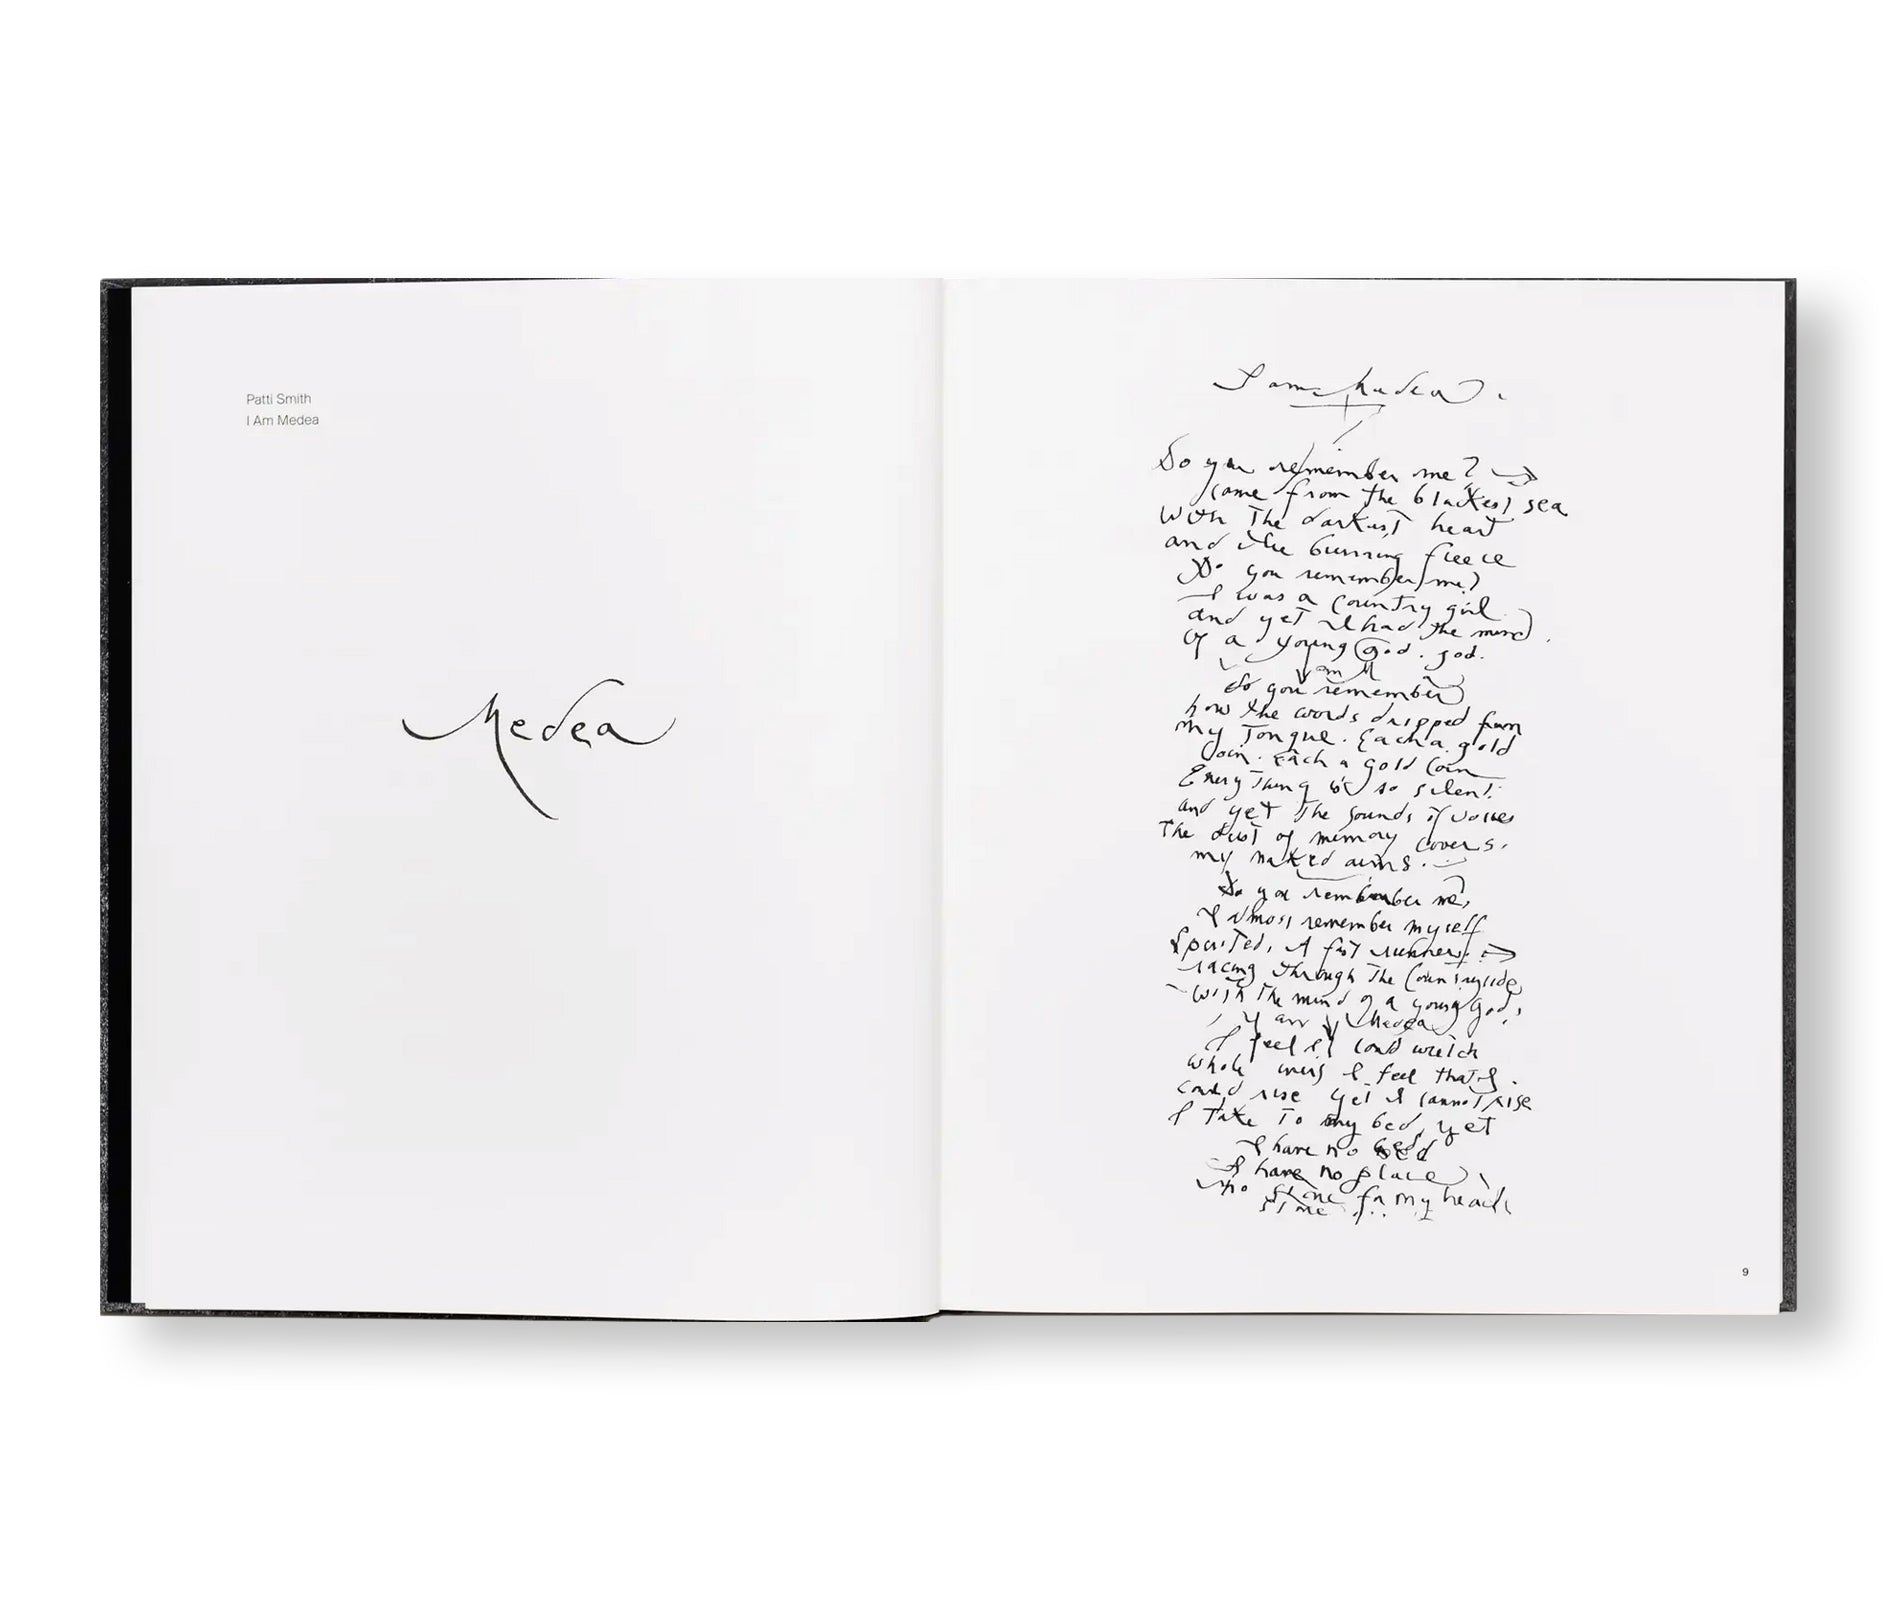 Patti Smith
I Am Medea
Medea
I am Medea.
Do you remember me?
come from the blackest sea
With the darkest heart
and the burning fleece
Do you remember me?
I was a country girl
and yet I had the mind
of a young God. god.
I am M
do you remember
how the words dripped from
my Tongue. Each a gold
Coin. Each a gold Coin
Every Thing is so silent.
and yet the sounds of voices
The dust of memory covers.
my naked arms.
Do you remember me,
I almost remember myself
Spirited, A fast runner.
racing through the Countryside
with the mind of a young God,
I am Medea
I feel I could
whole I feel that I
could rise yet I cannot rise
I Take To my bed, yet
I have no bed
I have no place
no stone for my head
stone
9